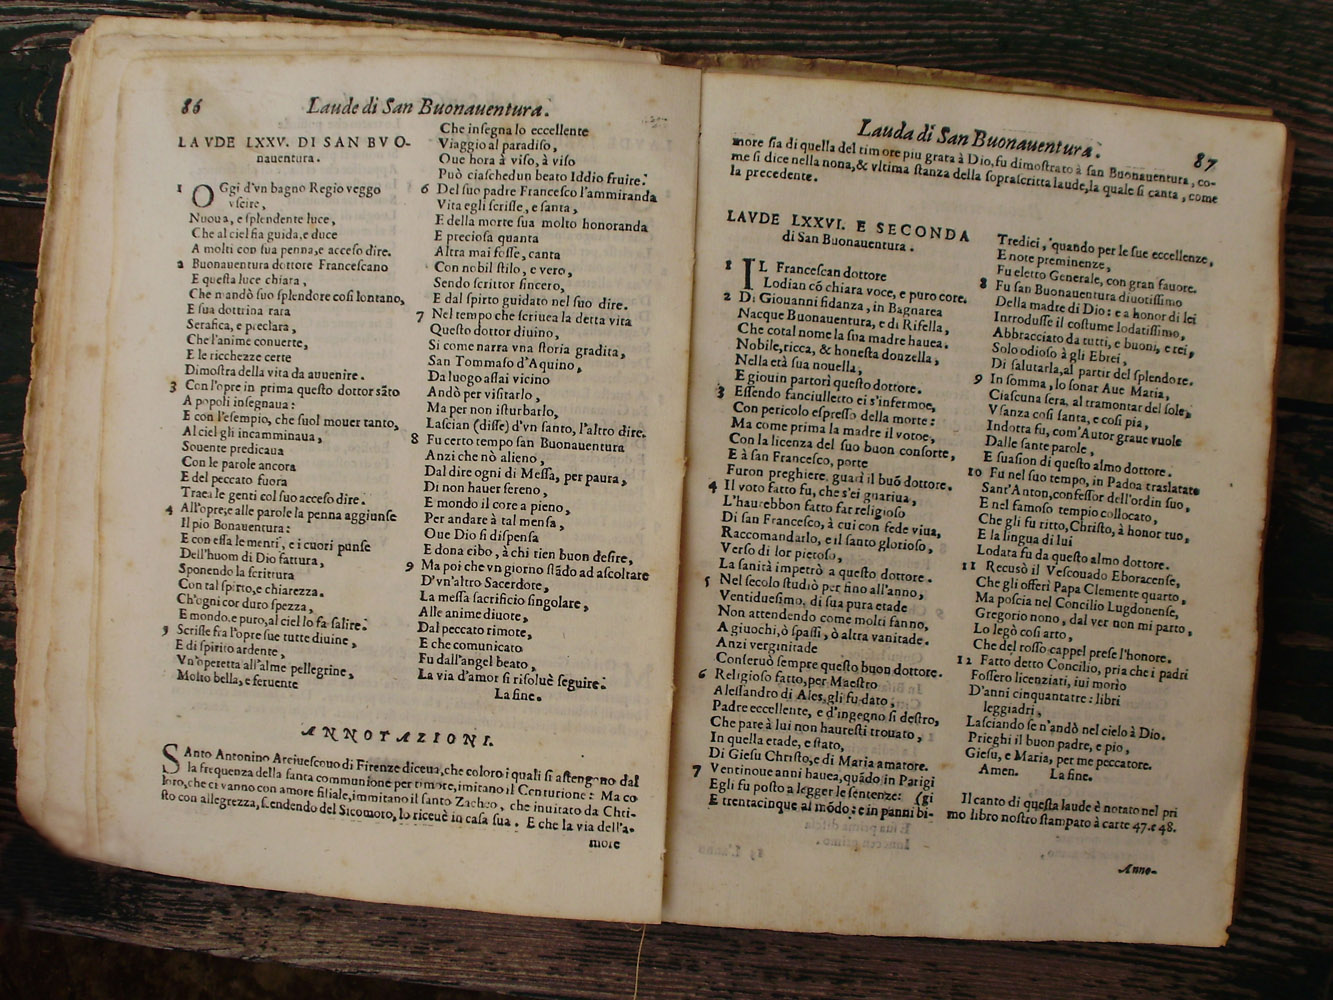 86
Laude di San Buonauentura.
LAVDE LXXV. DI SAN BVO-
nauentura.
1 OGgi d'vn bagno Regio veggo
vscire,
Nuoua, e splendente luce,
Che al ciel fia guida, e duce
A molti con sua penna, e acceso dire.
2 Buonauentura dottore Francescano
E questa luce chiara,
Che n'andò suo splendore cosi lontano,
E sua dottrina rara
Serafica, e preclara,
Che l'anime conuerte,
E le ricchezze certe
Dimostra della vita da auuenire.
3 Con l'opre in prima questo dottor sãto
A popoli insegnaua:
E con l'esempio, che suol mouer tanto,
Al ciel gli incamminaua,
Souente predicaua
Con le parole ancora
E del peccato fuora
Traea le genti col suo acceso dire.
4 All'opre, e alle parole la penna aggiunse
Il pio Bonauentura:
E con essa le menti, e i cuori punse
Dell'huom di Dio fattura,
Sponendo la scrittura
Con tal spirto, e chiarezza.
Ch'ogni cor duro spezza,
E mondo, e puro, al ciel lo fa salire.
5 Scrisse fra l'opre sue tutte diuine,
E di spirito ardente,
Vn'operetta all'alme pellegrine,
Molto bella, e feruente
Che insegna lo eccellente
Viaggio al paradiso,
Oue hora à viso, à viso
Può ciaschedun beato Iddio fruire.
6 Del suo padre Francesco l'ammiranda
Vita egli scrisse, e santa,
E della morte sua molto honoranda
E preciosa quanta
Altra mai fosse, canta
Con nobil stilo, e vero,
Sendo scrittor sincero,
E dal spirto guidato nel suo dire.
7 Nel tempo che scriuea la detta vita
Questo dottor diuino,
Si come narra vna storia gradita,
San Tommaso d'Aquino,
Da luogo assai vicino
Andò per visitarlo,
Ma per non isturbarlo,
Lascian (disse) d'vn santo, l'altro dire.
8 Fu certo tempo san Buonauentura
Anzi che nò alieno,
Dal dire ogni dì Messa, per paura,
Di non hauer sereno,
E mondo il core a pieno,
Per andare à tal mensa,
Oue Dio si dispensa
E dona cibo, à chi tien buon desire,
9 Ma poi che vn giorno stãdo ad ascoltare
D'vn'altro Sacerdote,
La messa sacrificio singolare,
Alle anime diuote,
Dal peccato rimote,
E che comunicato
Fu dall'angel beato,
La via d'amor si risoluè seguire.
La fine.
ANNOTAZIONI.
SAnto Antonino Arciuescouo di Firenze diceua, che coloro i quali si astengono dal
la frequenza della santa communione per timore, imitano il Centurione: Ma co
loro, che ci vanno con amore filiale, immitano il santo Zacheo, che inuitato da Chri-
sto con allegrezza, scendendo del Sicomoro, lo riceuè in casa sua. E che la via dell'a-
more
Lauda di San Buonauentura.
87
more sia di quella del timore piu grata à Dio, fu dimostrato à san Buonauentura, co-
me si dice nella nona, & vltima stanza della soprascritta laude, la quale si canta, come
la precedente.
LAVDE LXXVI. E SECONDA
di San Buonauentura.
1 IL Francescan dottore
Lodian cõ chiara voce, e puro core.
2 Di Giouanni fidanza, in Bagnarea
Nacque Buonauentura, e di Ritella,
Che cotal nome la sua madre hauea.
Nobile, ricca, & honesta donzella,
Nella età sua nouella,
E giouin partorì questo dottore.
3 Essendo fanciulletto ei s'infermoe,
Con pericolo espresso della morte:
Ma come prima la madre il votoe,
Con la licenza del suo buon consorte,
E à san Francesco, porte
Furon preghiere, guari il buõ dottore.
4 Il voto fatto fu, che s'ei guariua,
L'haurebbon fatto far religioso
Di san Francesco, à cui con fede viua,
Raccomandarlo, e il santo glorioso,
Verso di lor pietoso,
La sanità impetrò a questo dottore.
5 Nel secolo studiò per fino all'anno,
Ventiduesimo, di sua pura etade
Non attendendo come molti fanno,
A giuochi, ò spassi, ò altra vanitade.
Anzi verginitade
Conseruò sempre questo buon dottore.
6 Religioso fatto, per Maestro
Alessandro di Ales, gli fu dato,
Padre eccellente, e d'ingegno si destro,
Che pare à lui non hauresti trouato,
In quella etade, e stato,
Di Giesu Christo, e di Maria amatore.
7 Ventinoue anni hauea, quãdo in Parigi
Egli fu posto a legger le sentenze: (gi
E trentacinque al mõdo: e in panni bi-
Tredici, quando per le sue eccellenze,
E note preminenze,
Fu eletto Generale, con gran fauore.
8 Fu san Buonauentura diuotissimo
Della madre di Dio: e a honor di lei
Introdusse il costume lodatissimo,
Abbracciato da tutti, e buoni, e rei,
Solo odioso à gli Ebrei,
Di salutarla, al partir del splendore.
9 In somma, lo sonar Aue Maria,
Ciascuna sera, al tramontar del sole,
Vsanza cosi santa, e cosi pia,
Indotta fu, com'Autor graue vuole
Dalle sante parole,
E suasion di questo almo dottore.
10 Fu nel suo tempo, in Padoa traslatato
Sant'Anton, confessor dell'ordin suo,
E nel famoso tempio collocato,
Che gli fu ritto, Christo, à honor tuo,
E la lingua di lui
Lodata fu da questo almo dottore.
11 Recusò il Vescouado Eboracense,
Che gli offerì Papa Clemente quarto,
Ma poscia nel Concilio Lugdonense,
Gregorio nono, dal ver non mi parto,
Lo legò cosi arto,
Che del rosso cappel prese l'honore.
12 Fatto detto Concilio, pria che i padri
Fossero licenziati, iui morìo
D'anni cinquantatre: libri
leggiadri,
Lasciando se n'andò nel cielo à Dio.
Prieghi il buon padre, e pio,
Giesu, e Maria, per me peccatore.
Amen. La fine.
Il canto di questa laude è notato nel pri
mo libro nostro stampato à carte 47. e 48.
Anno-